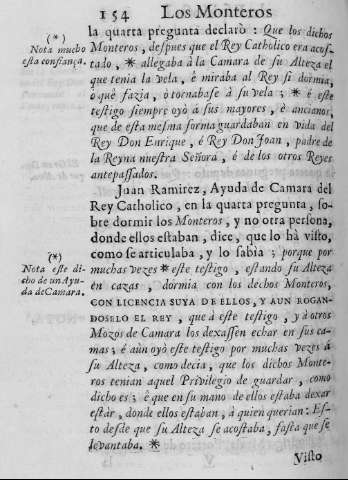 154 Los Monteros
la quarta pregunta declarò : Que los dichos
(*)
Nota mucho
esta confiança.
Monteros, despues que el Rey Catholico era acos-
tado, * allegaba à la Camara de su Alteza el
que tenia la vela, è miraba al Rey si dormia,
ò què fazia, ò tornabase à su vela ; * è este
testigo siempre oyò à sus mayores, è ancianos,
que de esta mesma forma guardaban en vida del
Rey Don Enrique, è Rey Don Joan, padre de
la Reyna nuestra Señora, è de los otros Reyes
antepassados.
Juan Ramirez, Ayuda de Camara del
Rey Catholico, en la quarta pregunta, so-
bre dormir los Monteros, y no otra persona,
donde ellos estaban, dice, que lo hà visto,
como se articulaba, y lo sabia ; porque por
(*)
Nota este di-
cho de un Ayu-
da de Camara.
muchas vezes * este testigo, estando su Alteza
en cazas, dormia con los dechos Monteros,
CON LICENCIA SUYA DE ELLOS, Y AUN ROGAN-
DOSELO EL REY, que à este testigo, y à otros
Mozos de Camara los dexassen echar en sus ca-
mas; è aun oyò este testigo por muchas vezes à
su Alteza, como decia, que los dichos Monte-
ros tenian aquel Privilegio de guardar, como
dicho es ; è que en su mano de ellos estaba dexar
estàr, donde ellos estaban, à quien querian: Es-
to desde que su Alteza se acostaba, fasta que se
levantaba. *
Visto